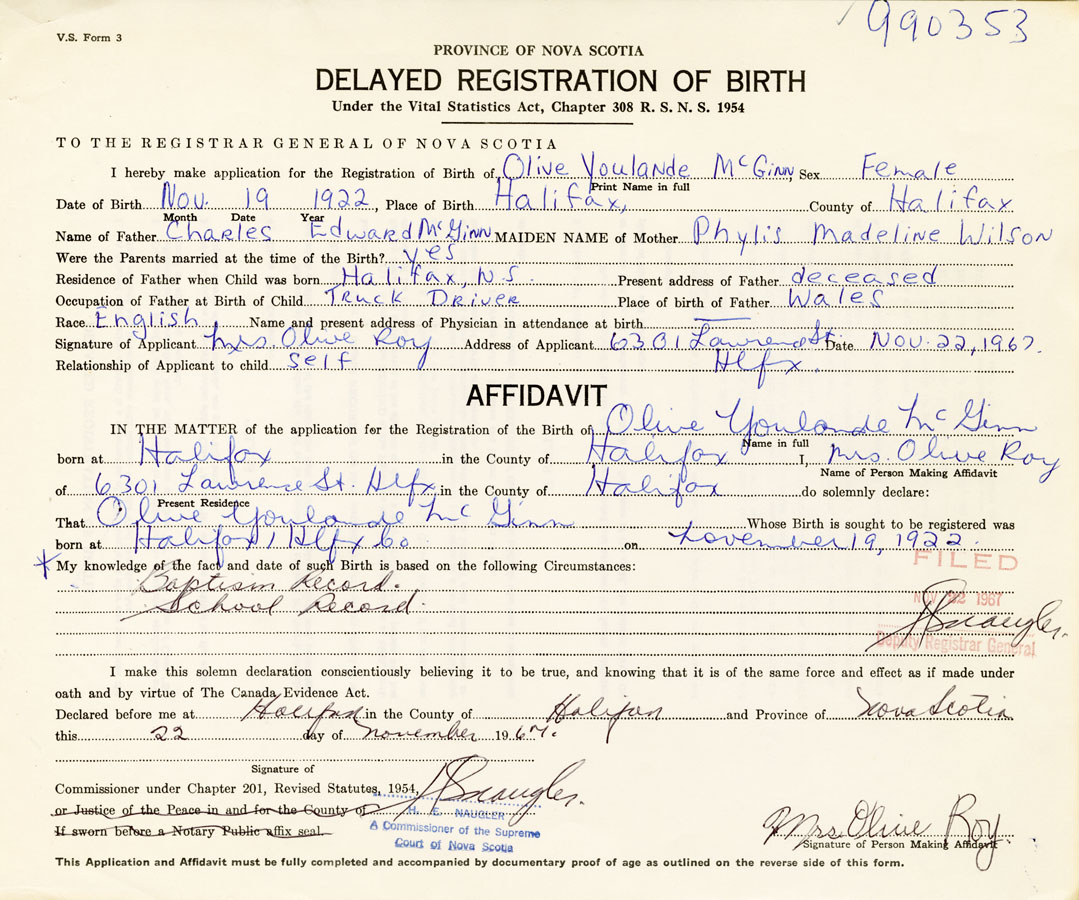 V.S. Form 3
990353
PROVINCE OF NOVA SCOTIA
DELAYED REGISTRATION OF BIRTH
Under the Vital Statistics Act, Chapter 308 R. S. N. S. 1954
TO THE REGISTRAR GENERAL OF NOVA SCOTIA
I hereby make application for the Registration of Birth of Olive Youlande McGinn Sex Female
Print Name in full
Date of Birth Nov. 19 1922, Place of Birth Halifax, County of Halifax
Month Date Year
Name of Father Charles Edward McGinn MAIDEN NAME of Mother Phylis Madeline Wilson
Were the Parents married at the time of the Birth? yes
Residence of Father when Child was born Halifax, N.S Present address of Father deceased
Occupation of Father at Birth of Child Truck Driver Place of birth of Father Wales
Race English Name and present address of Physician in attendance at birth —
Signature of Applicant Mrs Olive Roy Address of Applicant 6301 Lawrence St. Date Nov. 22, 1967.
Relationship of Applicant to child self Hlfx.
AFFIDAVIT
IN THE MATTER of the application for the Registration of the Birth of Olive Youlande McGinn
Name in full
born at Halifax in the County of Halifax I, Mrs. Olive Roy
Name of Person Making Affidavit
of 6301 Lawrence St. Hlfx in the County of Halifax do solemnly declare:
Present Residence
That Olive Youlande McGinn Whose Birth is sought to be registered was
born at Halifax, Hlfx Co on November 19, 1922.
My knowledge of the fact and date of such Birth is based on the following Circumstances:
FILED
Baptism Record.
School Record.
NOV 22 1967
HENaugler.
Deputy Registrar General
I make this solemn declaration conscientiously believing it to be true, and knowing that it is of the same force and effect as if made under
oath and by virtue of The Canada Evidence Act.
Declared before me at Halifax in the County of Halifax and Province of Nova Scotia
this 22 day of November 1967.
Signature of
Commissioner under Chapter 201, Revised Statutes, 1954, HENaugler.
or Justice of the Peace in and for the County of
H. E. NAUGLER
If sworn before a Notary Public affix seal.
A Commissioner of the Supreme
Court of Nova Scotia
Mrs. Olive Roy.
Signature of Person Making Affidavit
This Application and Affidavit must be fully completed and accompanied by documentary proof of age as outlined on the reverse side of this form.